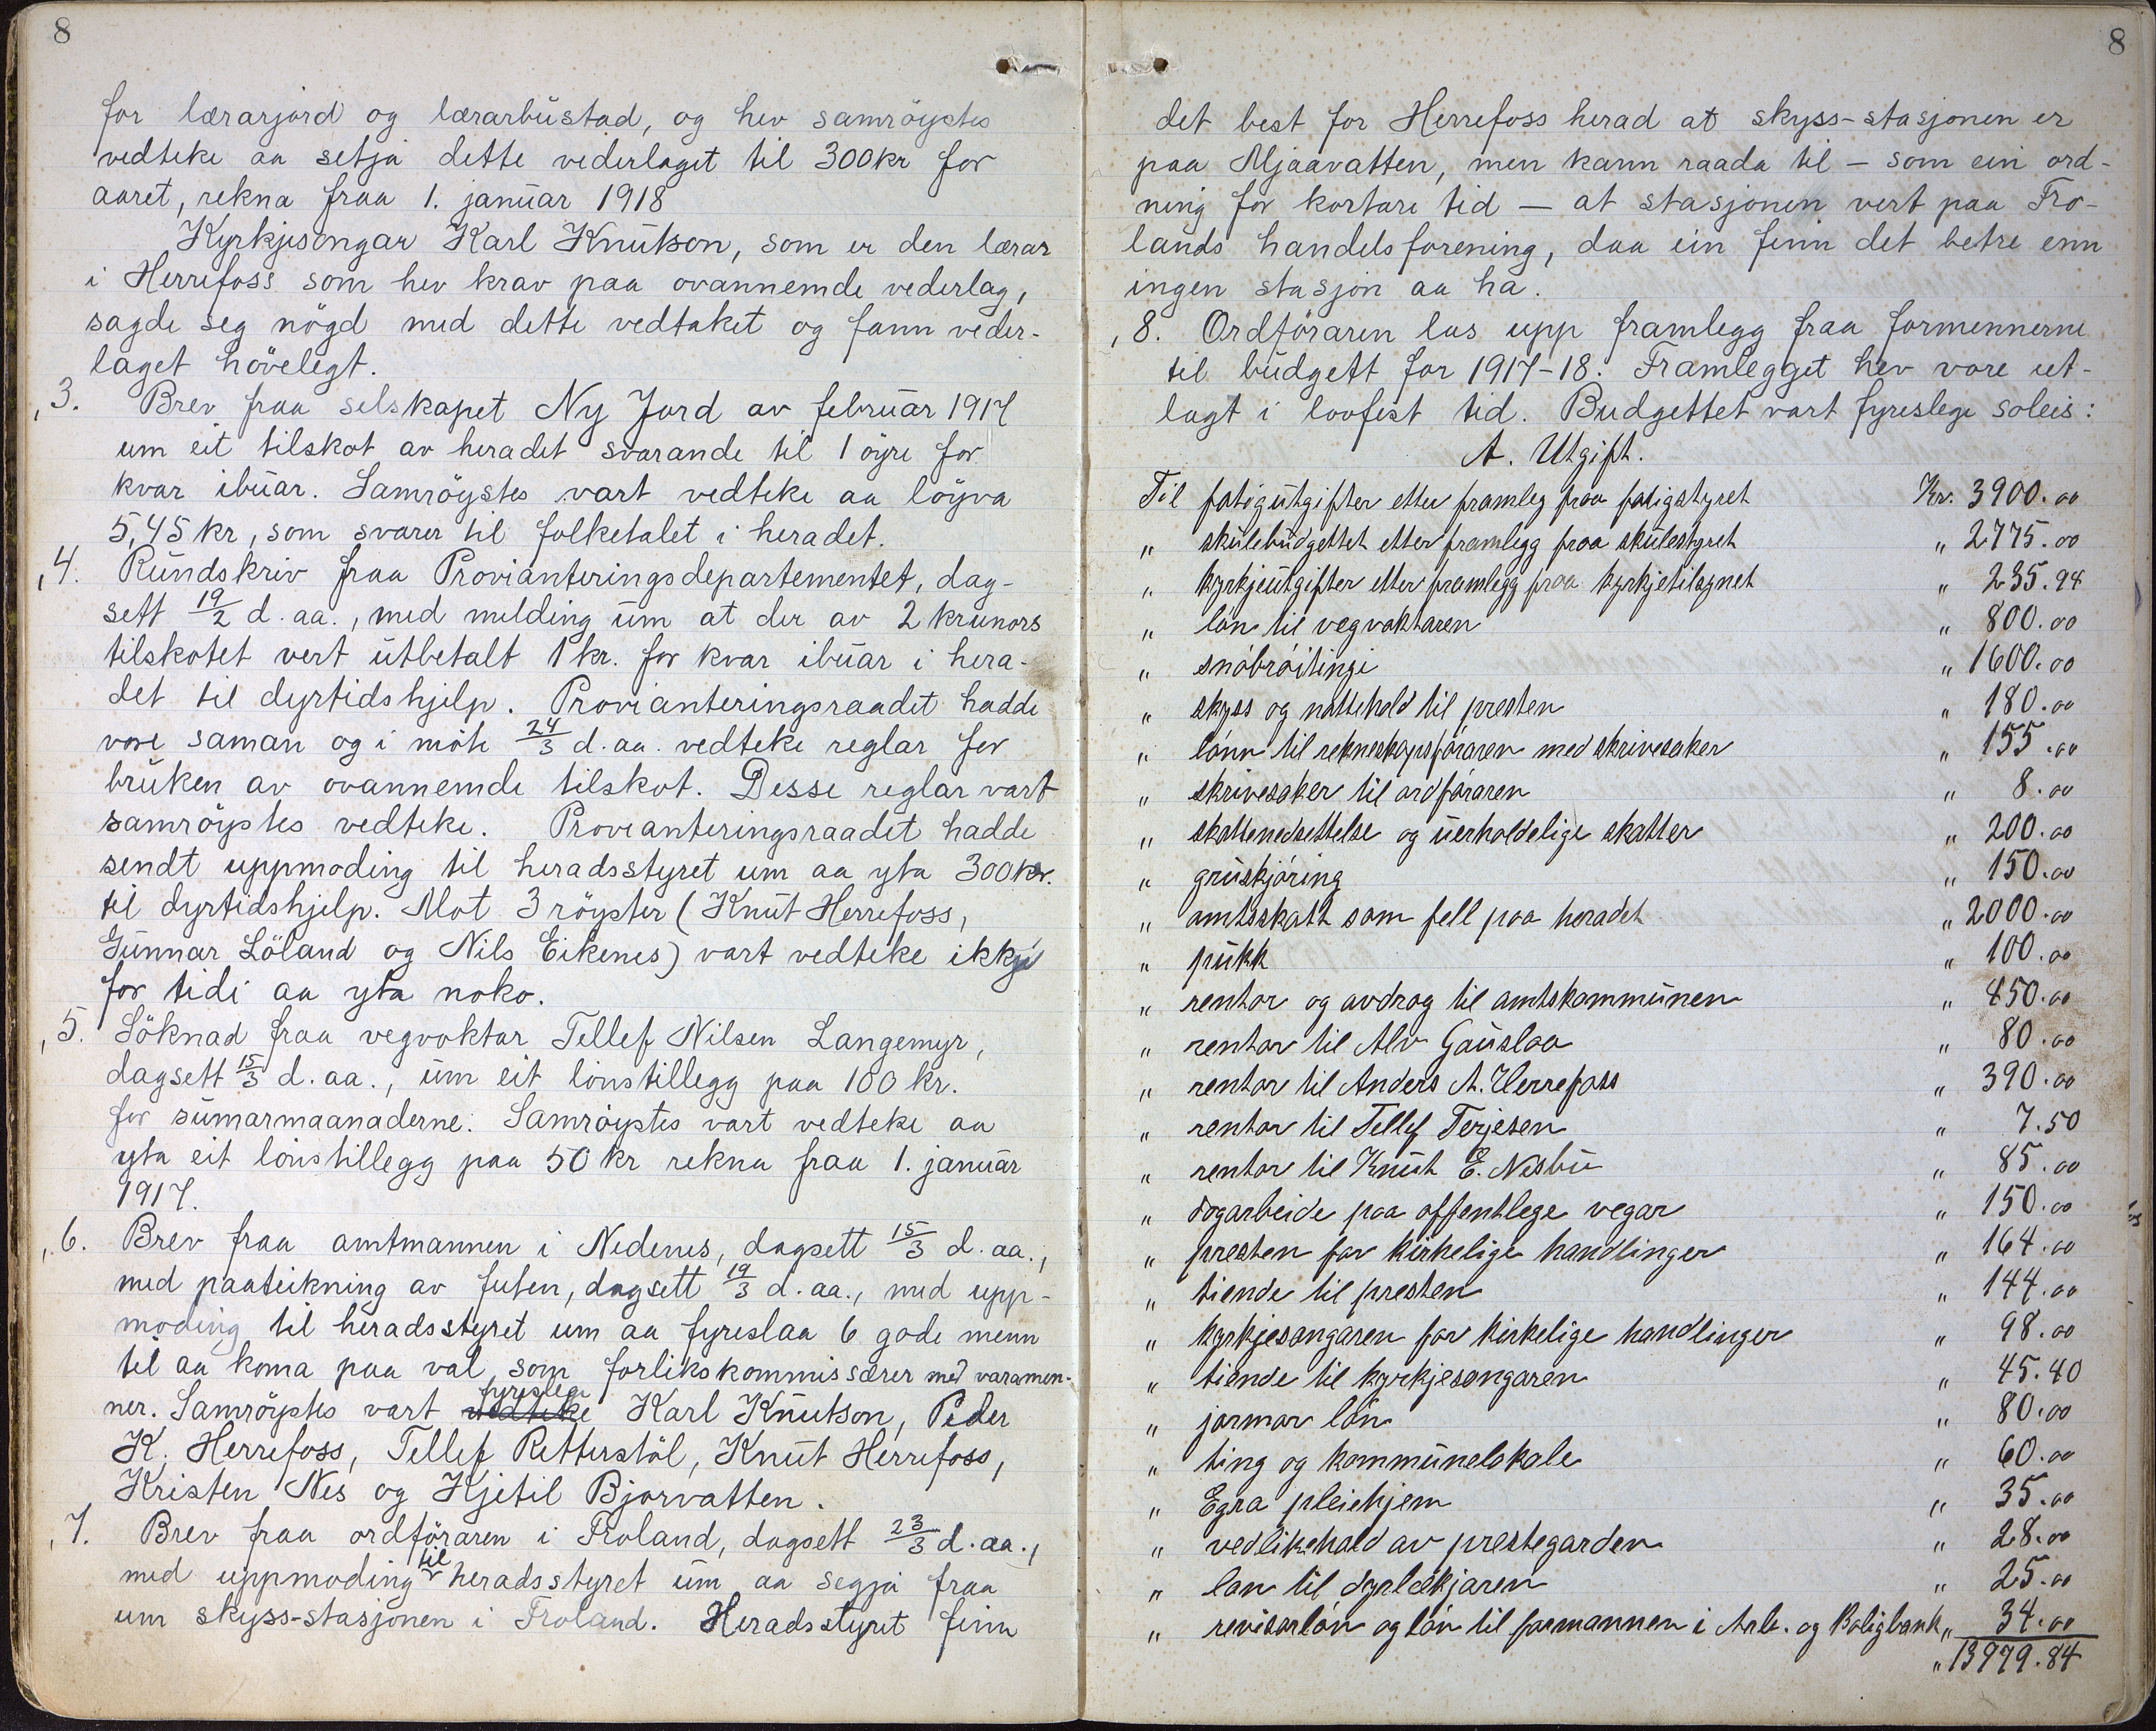 8
for lærarjord og lærarbustad, og hev samröystes
vedteke aa setja dette vederlaget til 300 kr for
aaret, rekna fraa 1. januar 1918
Kyrkjesongar Karl Knutson, som er den lærar
i Herrefoss som hev krav paa ovannemde vederlag,
sagde seg nögd med dette vedtaket og fann veder-
laget hövelegt.
,3. Brev fraa selskapet Ny Jord av februar 1917
um eit tilskot av heradet svarande til 1 öyre for
kvar ibuar. Samröystes vart vedteke aa löyva
5,45 kr, som svarer til folketalet i heradet.
,4. Rundskriv fraa Provianteringsdepartementet, dag-
sett 19/2 d. aa., med melding um at der av 2 krunors
tilskotet vert utbetalt 1 kr. for kvar ibuar i hera-
det til dyrtidshjelp. Provianteringsraadet hadde
vore saman og i möte 24/3 d. aa. vedteke reglar for
bruken av ovannemde tilskot. Desse reglar vart
samröystes vedteke. Provianteringsraadet hadde
sendt uppmoding til heradsstyret um aa yta 300 kr.
til dyrtidshjelp. Mot 3 röyster (Knut Herrefoss,
Gunnar Löland og Nils Eikenes) vart vedteke ikkje
for tidi aa yta noko.
,5. Söknad fraa vegvoktar Tellef Nilsen Langemyr,
dagsett 15/3 d. aa., um eit lönstillegg paa 100 kr.
for sumarmaanaderne. Samröystes vart vedteke aa
yta eit lönstillegg paa 50 kr rekna fraa 1. januar
1917.
,6. Brev fraa amtmannen i Nedenes, dagsett 15/3 d. aa.,
med paateikning av futen, dagsett 19/3 d. aa., med upp-
moding til heradsstyret um aa fyreslaa 6 gode menn
til aa koma paa val som forlikskommissærer med varamen-
ner. Samröystes vart vedteke fyreslege Karl Knutson, Peder
K. Herrefoss, Tellef Retterstöl, Knut Herrefoss,
Kristen Nes og Kjetil Bjorvatten.
,7. Brev fraa ordföraren i Froland, dagsett 23/3 d. aa.,
med uppmoding til heradsstyret um aa segja fraa
um skyss-stasjonen i Froland. Heradsstyret finn
8
det best for Herrefoss herad at skyss-stasjonen er
paa Mjaavatten, men kann raada til – som ein ord-
ning for kortare tid – at stasjonen vert paa Fro-
lands handelsforening, daa ein finn det betre enn
ingen stasjon aa ha.
,8. Ordföraren las upp framlegg fraa formennerne
til budgett for 1917-18. Framlegget hev vore ut-
lagt i lovfest tid. Budgettet vart fyreslege soleis:
A. Utgift.
Til fatigutgifter etter framleg fraa fatigstyret Kr. 3900.00
" skulebudgettet etter framlegg fraa skulestyret " 2775.00
" kyrkjeutgifter etter framlegg fraa kyrkjetilsynet " 235.94
" lön til vegvaktaren " 800.00
" snöbröitingi " 1600.00
" skyss og nattehold til presten " 180.00
" lönn til rekneskapsföraren med skrivesaker " 155.00
" skrivesaker til ordföraren " 8.00
" skattenedsettelse og uerholdelige skatter " 200.00
" gruskjöring " 150.00
" amtsskatt som fell paa heradet " 2000.00
" pukk " 100.00
" rentor og avdrag til amtskommunen " 450.00
" rentor til Alv Gauslaa " 80.00
" rentor til Anders A. Herrefoss " 390.00
" rentor til Tellef Terjesen " 7.50
" rentor til Knut E. Nesbu " 85.00
" dogarbeide paa offentlege vegar " 150.00
" presten for kirkelige handlinger " 164.00
" tiende til presten " 144.00
" kyrkjesongaren for kirkelige handlinger " 98.00
" tiende til kyrkjesongaren " 45.40
" jormor lön " 80.00
" ting og kommunelokale " 60.00
" Egra pleiehjem " 35.00
" vedlikehold av prestegarden " 28.00
" lön til dyrlækjaren " 25.00
" revisorlön og lön til formannen i Arb. og Boligbank " 34.00
" 13979.84